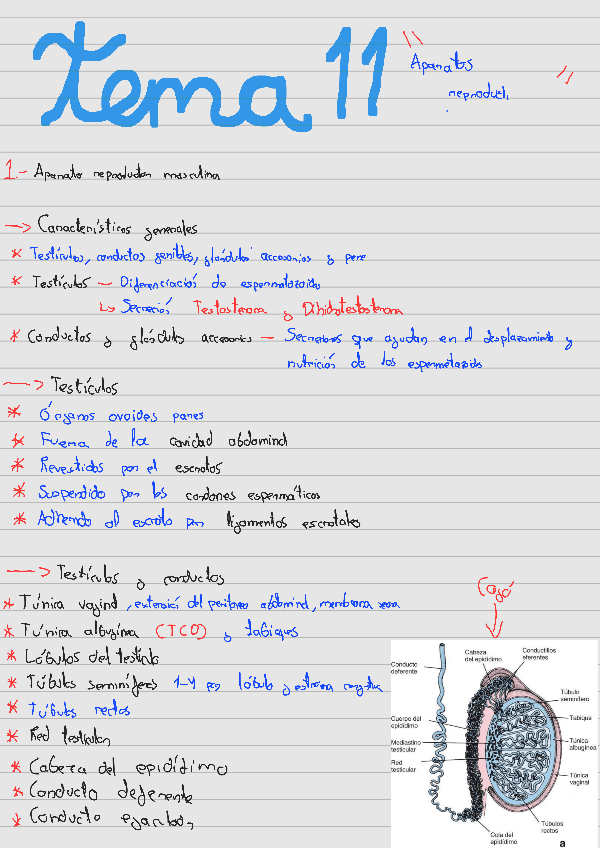 Tema 11
" Aparatos
reproducti "
1.- Aparato reproductor masculino
→ Características generales
* Testículos, conductos genitales, glándulas accesorias y pene
* Testículos — Diferenciación de espermatozoides
↳ Secreción Testosterona y Dihidrotestosterona
* Conductos y glándulas accesorias — Secreciones que ayudan en el desplazamiento y
nutrición de los espermatozoides
→ Testículos
* Órganos ovoides pares
* Fuera de la cavidad abdominal
* Revestidos por el escroto
* Suspendido por los cordones espermáticos
* Adherido al escroto por ligamentos escrotales
→ Testículos y conductos
* Túnica vaginal, extensión del peritoneo abdominal, membrana
* Túnica albugínea (TCD) y tabiques
* Lóbulos del testículo
* Túbulos seminíferos 1-4 por lóbulo y estroma
* Túbulos rectos
* Red testicular
* Cabeza del epidídimo
* Conducto deferente
* Conducto
Conducto
deferente
Cabeza
del epidídimo
Conductillos
eferentes
Túbulo
seminífero
Tabique
Túnica
albugínea
Túnica
vaginal
Cuerpo del
epidídimo
Mediastino
testicular
Red
testicular
Cola del
epidídimo
Túbulos
rectos
a